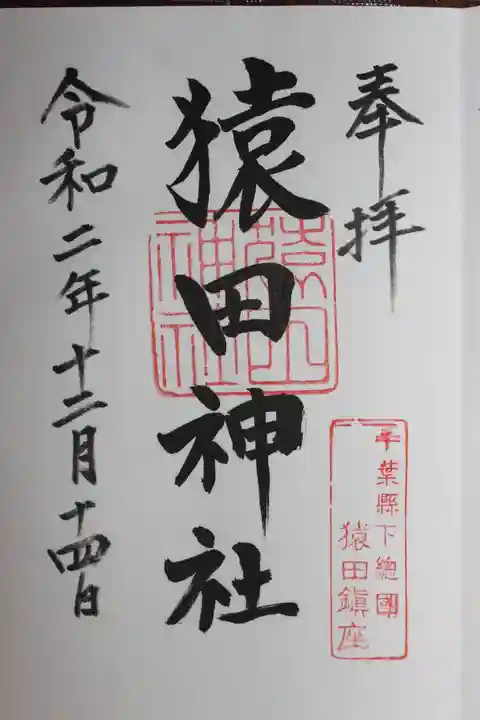 奉拝
千葉縣下總國
猿田鎭座
猿田神社
猿田神社
令和二年十二月十四日